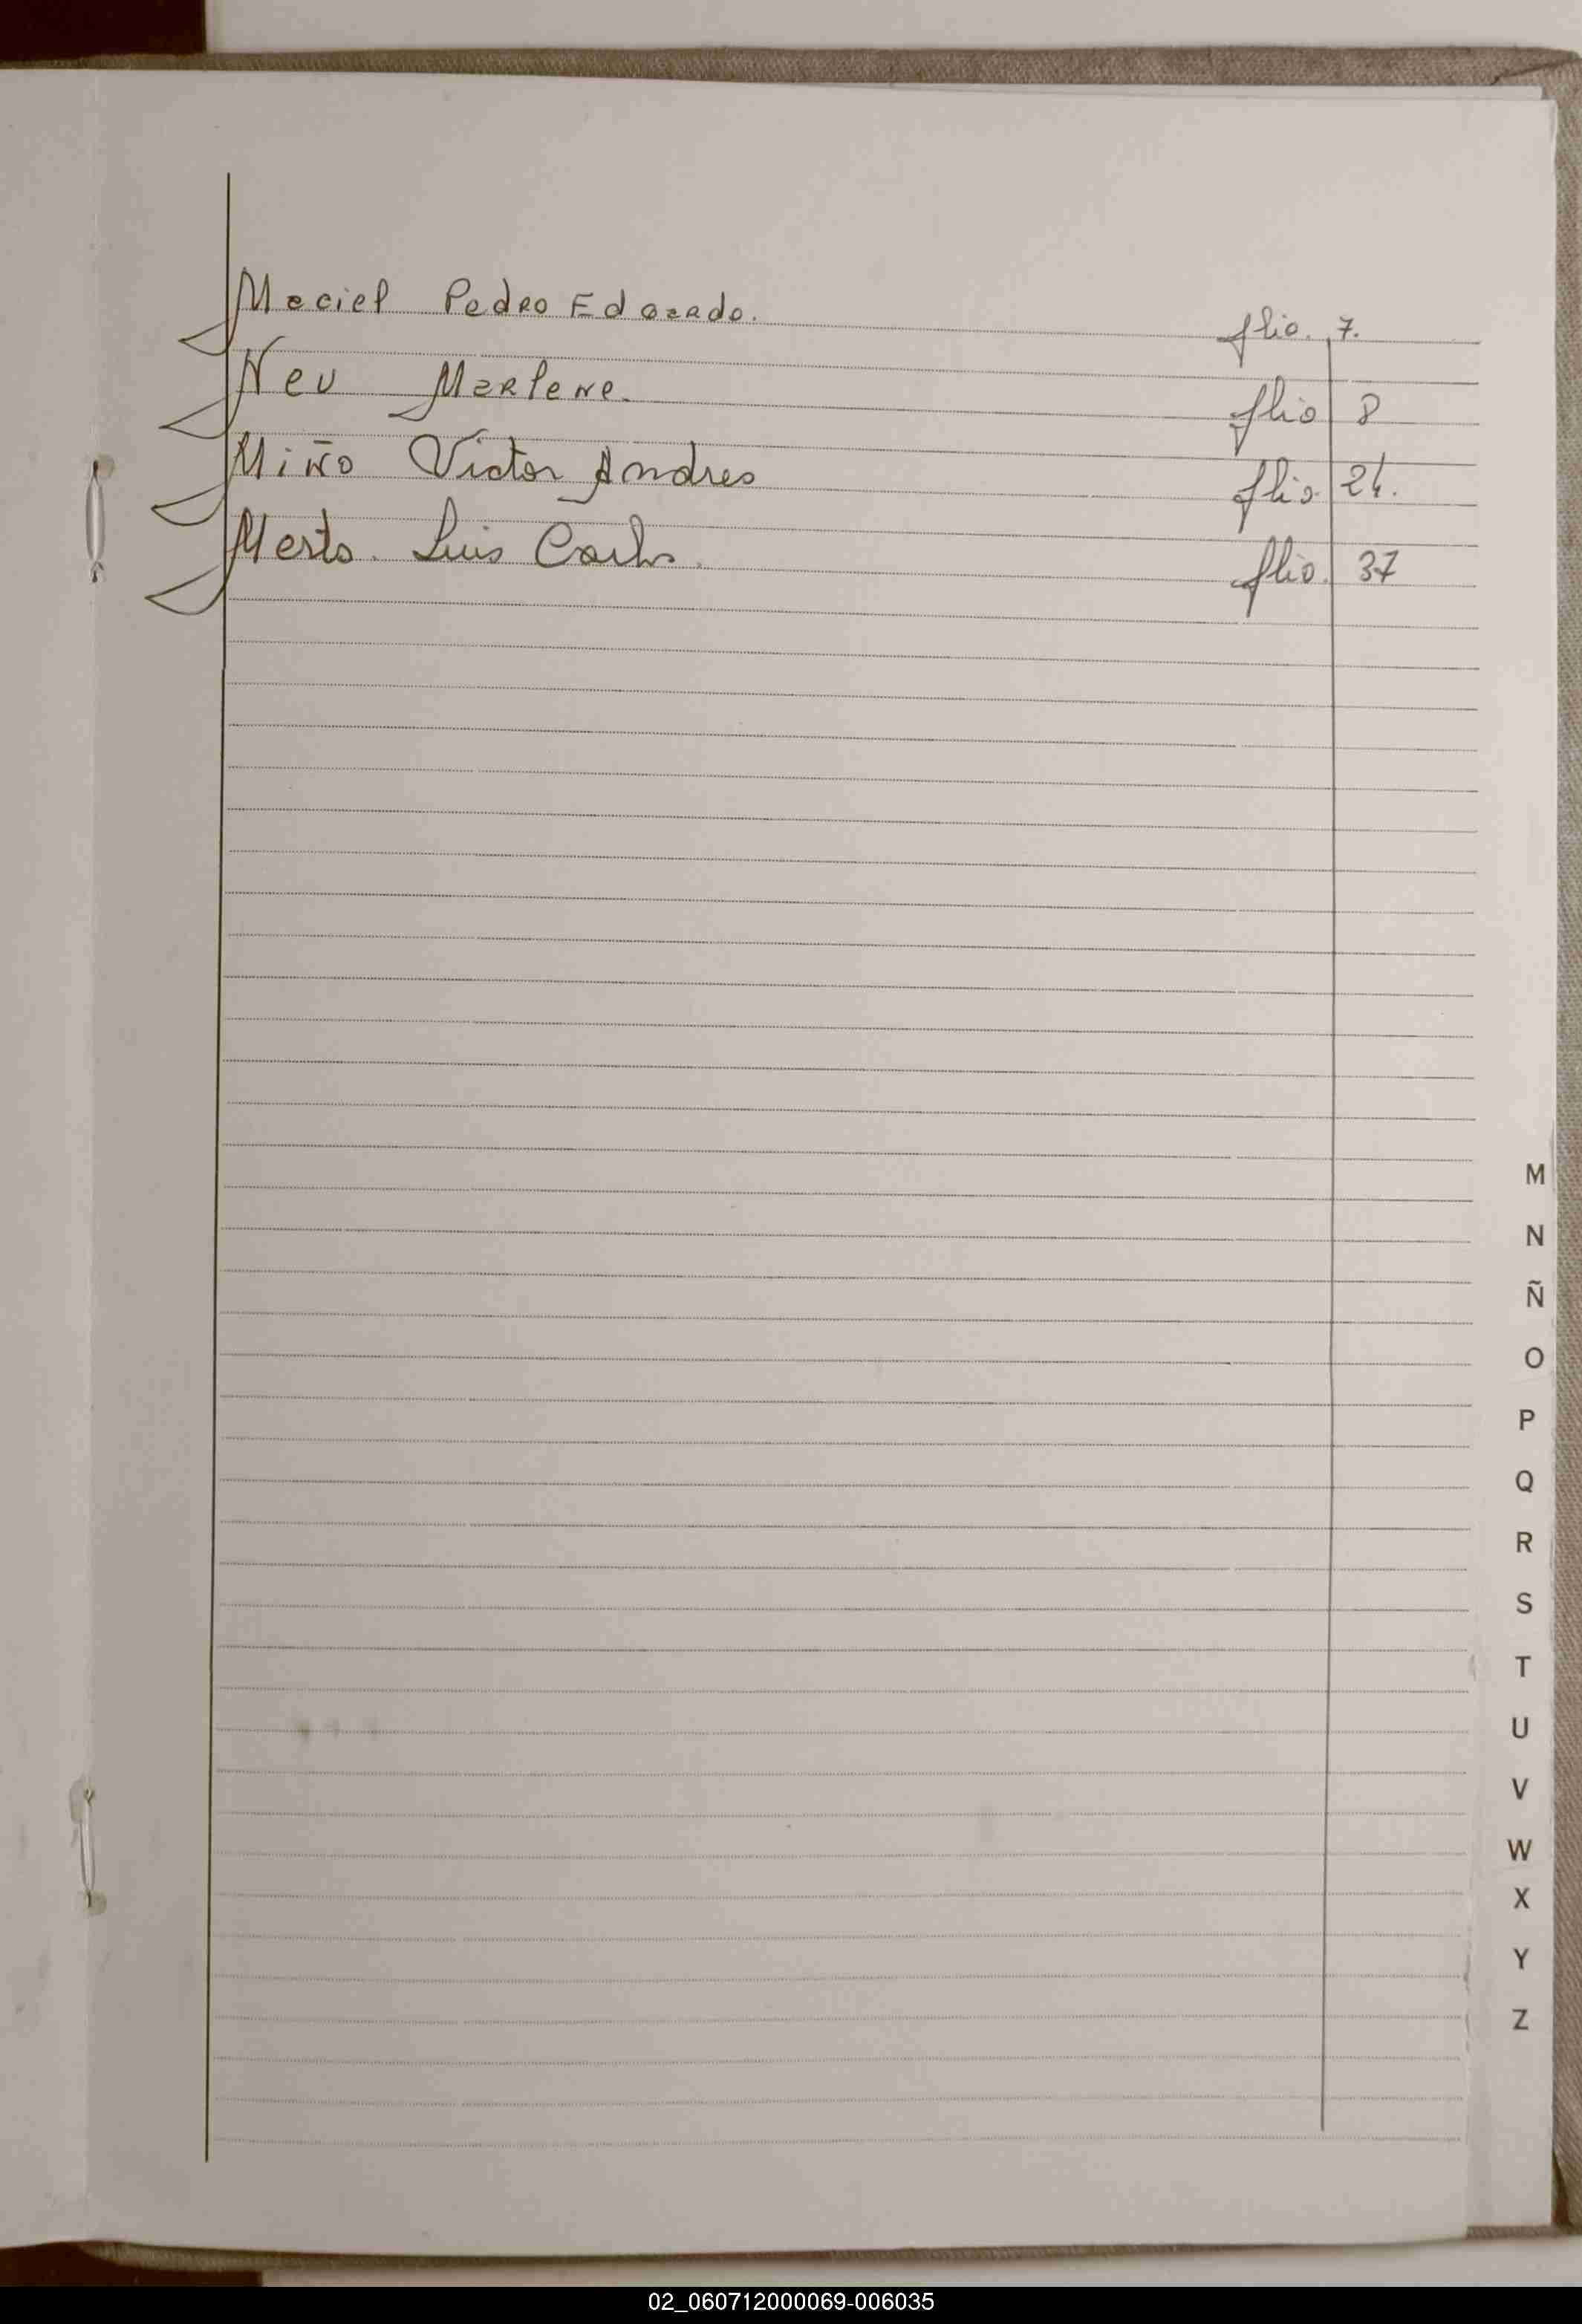 Maciel Pedro Edoardo. flio. 7.
Neu Marlene. flio 8
Miño Victor Andres flio. 24.
Merlo. Luis Carlos. flio. 37
M
N
Ñ
O
P
Q
R
S
T
U
V
W
X
Y
Z
02_060712000069-006035